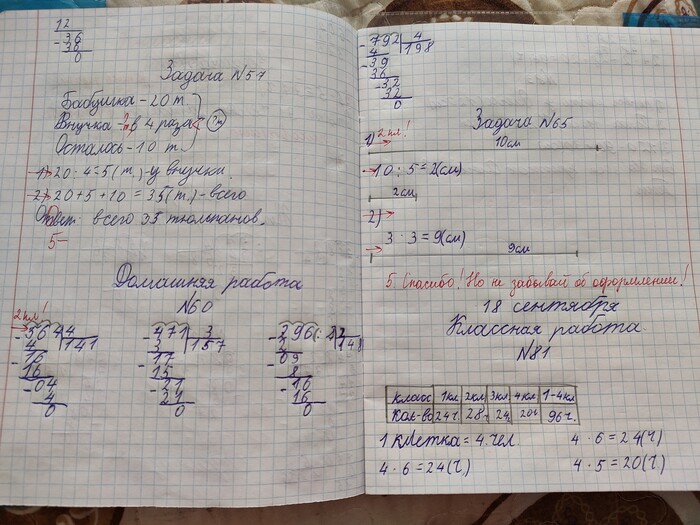 12
- 36
36
0
Задача №57
Бабушка - 20 т.
Внучка - ? в 4 раза < ? т
Осталось - 10 т.
1) 20 : 4 = 5 (т.) - у внучки.
2) 20 + 5 + 10 = 35 (т.) - всего
Ответ: всего 35 тюльпанов.
5-
Домашняя работа
№60
2 кл!
- 564 4
4 141
- 16
16
- 04
4
0
- 471 3
3 157
- 17
15
- 21
21
0
- 296 2
2 148
- 09
8
- 16
16
0
- 792 4
4 198
- 39
36
- 32
32
0
Задача №65
2 кл!
1)
10 см
10 : 5 = 2 (см)
2 см
2)
3 · 3 = 9 (см)
9 см
5. Спасибо! Но не забывай об оформлении!
18 сентября
Классная работа.
№81
класс 1кл 2кл 3кл 4кл 1-4кл
Кол-во 24ч 28ч 24ч 20ч 96ч.
1 клетка = 4 чел. 4 · 6 = 24 (ч)
4 · 6 = 24 (ч.) 4 · 5 = 20 (ч)